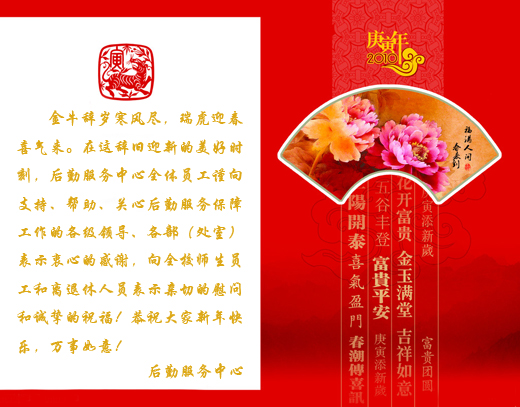 寅
金牛辞岁寒风尽，瑞虎迎春
喜气来。在这辞旧迎新的美好时
刻，后勤服务中心全体员工谨向
支持、帮助、关心后勤服务保障
工作的各级领导、各部（处室）
表示衷心的感谢，向全校师生员
工和离退休人员表示亲切的慰问
和诚挚的祝福！恭祝大家新年快
乐，万事如意！
后勤服务中心
庚寅年
2010
福满人间
春来到
庚寅添新歲
花开富贵 金玉满堂 吉祥如意
五谷丰登 富貴平安 庚寅添新歲
陽開泰 喜氣盈門 春潮傳喜訊
富贵团圆